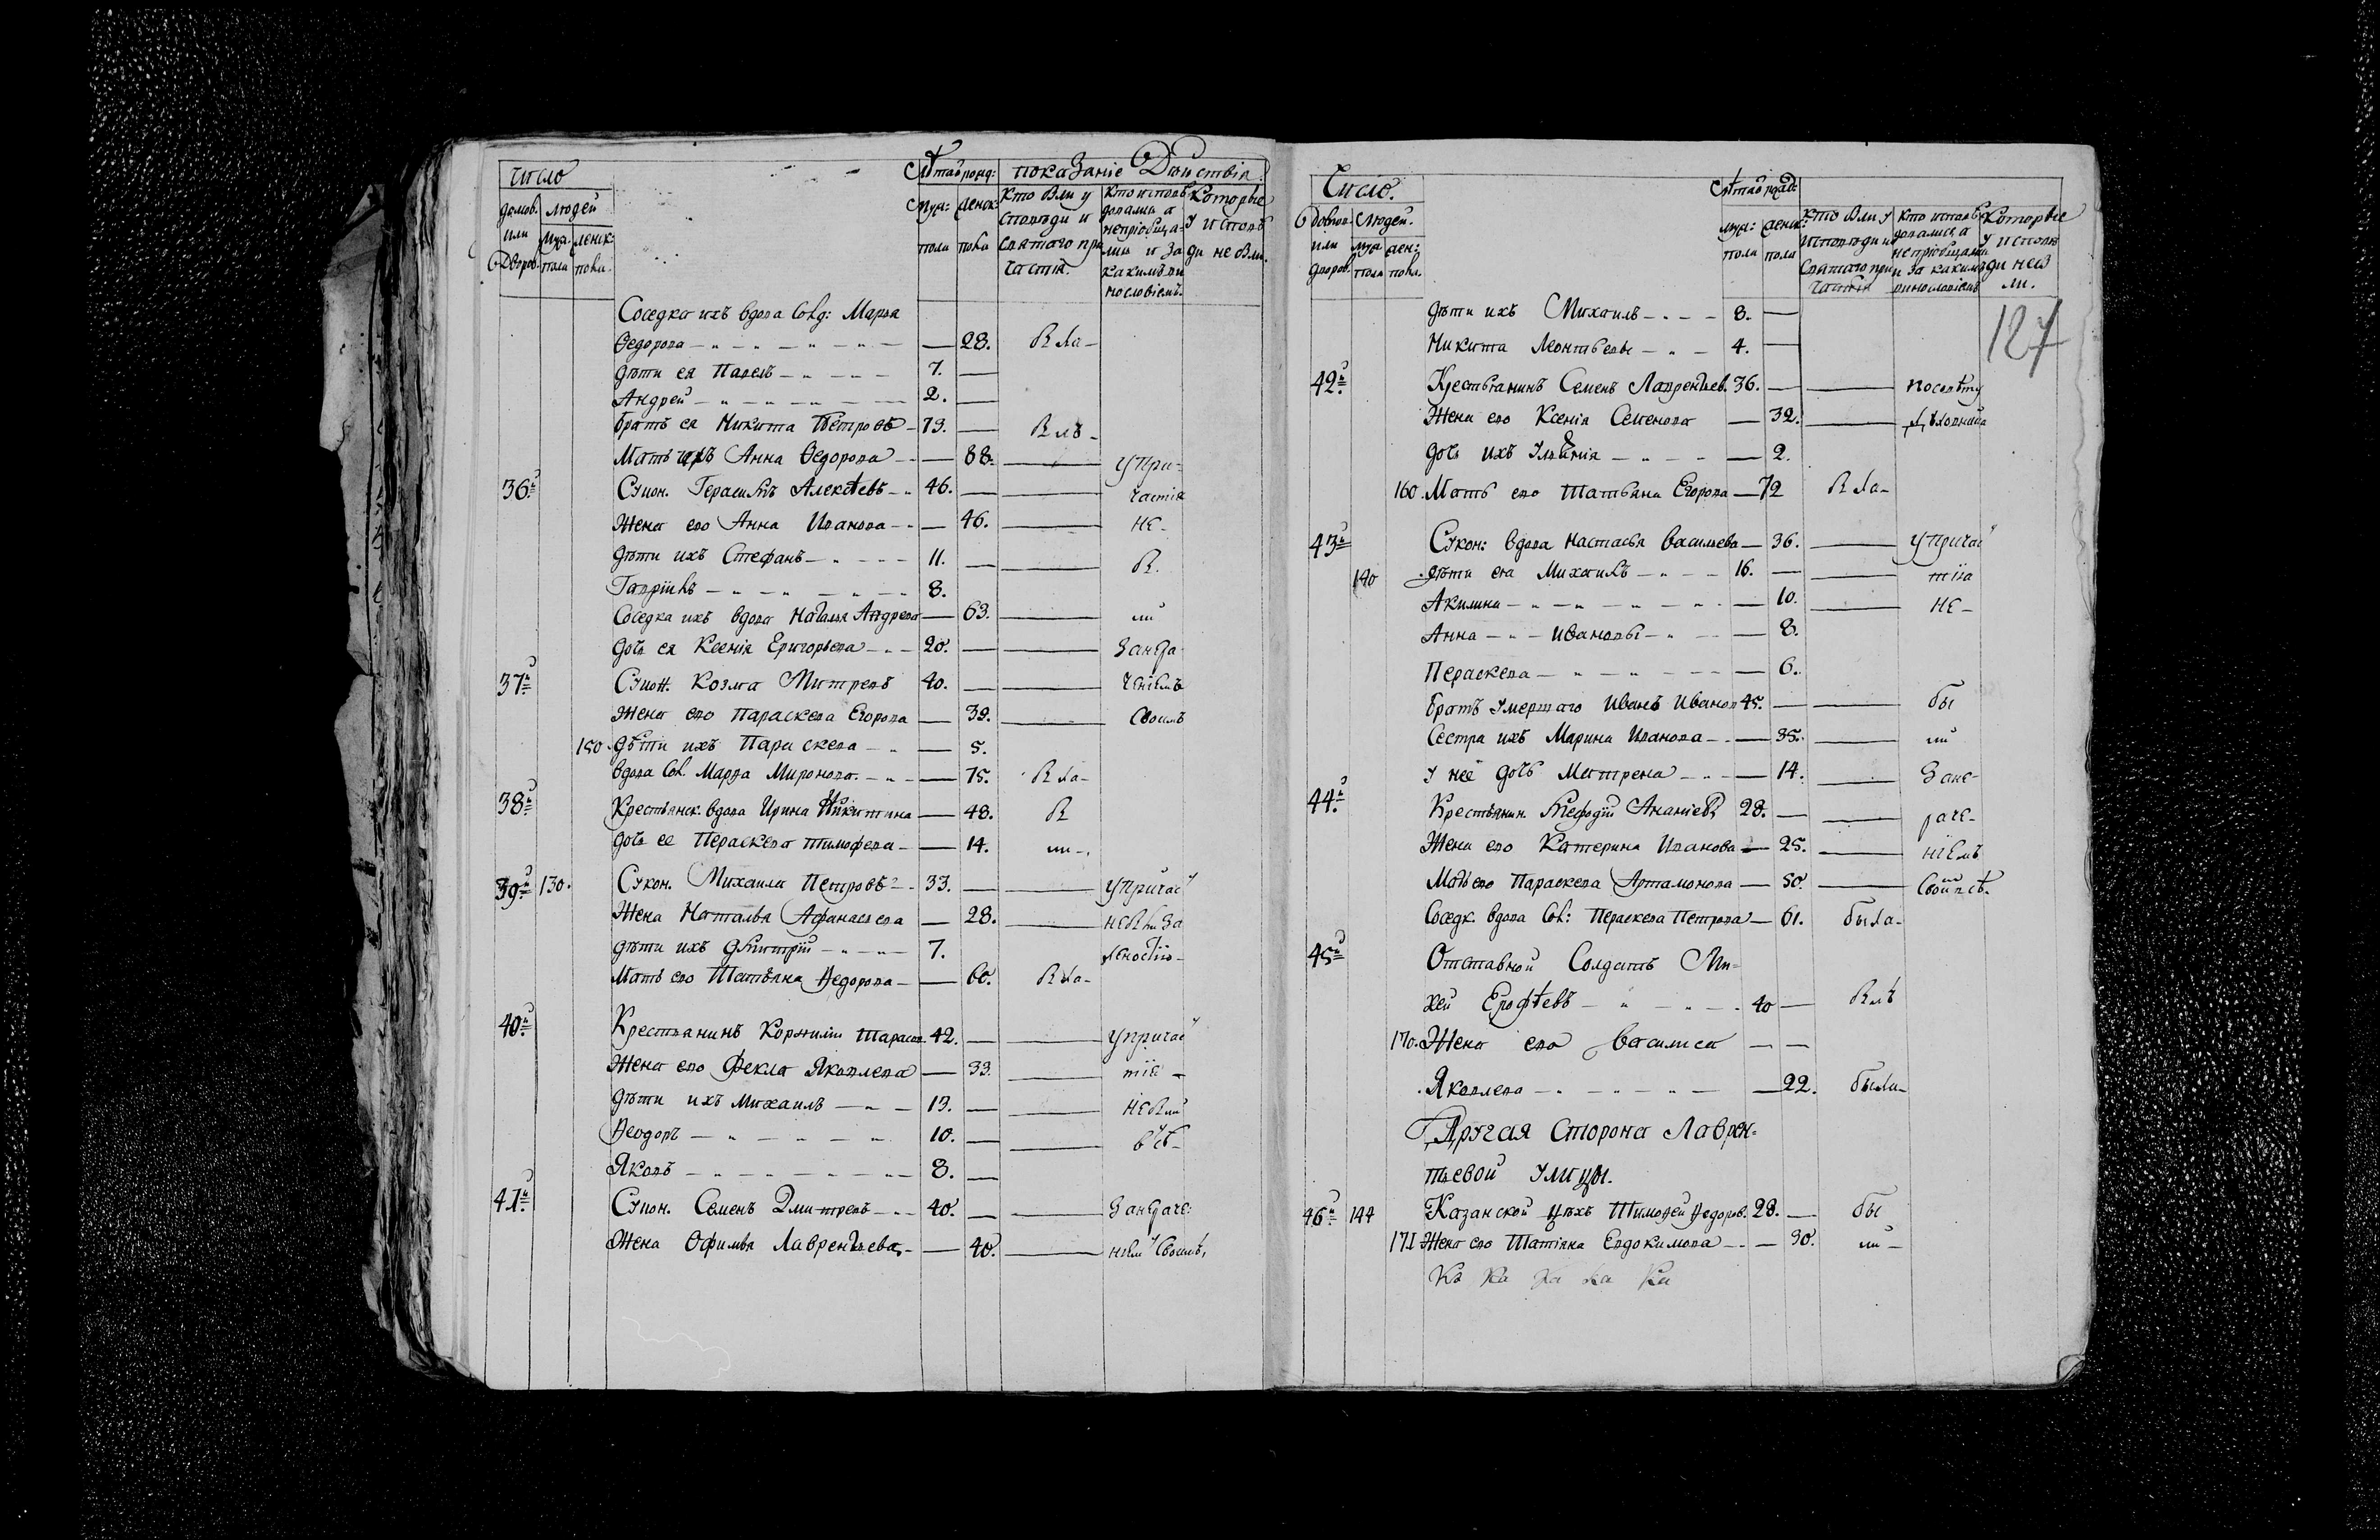 Число
Лѣта ѿ рожд:
показаніе Дѣйствія.
домов. людей
или муж. женск:
дворов. пола пола.
муж: женск:
пола пола
Кто были у исповѣди и святаго причастія.
Кто исповѣдались а непріобщались и за какимъ винословіемъ.
Которые у исповѣди не были.
Соседка ихъ вдова сол: Марья
Ѳедорова — 28. была
дѣти ея Павелъ 7. —
Андрей 2. —
братъ ея Никита Петровъ 73. — былъ
Мать ихъ Анна Ѳедорова — 88. — у при-
36й Сукон. Герасимъ Алексѣевъ 46. — — частія
Жена его Анна Иванова — 46. — не
дѣти ихъ Стефанъ 11. — — б
Гавріилъ 8.
Соседка ихъ вдова Наталья Андреева — 63. — ли
дочь ея Ксенія Григорьева 20. — — за нера
37й Сукон. Козма Митревъ 40. — — ченіемъ
Жена его Параскева Егорова — 39. — своимъ
150. дѣти ихъ Параскева — 5.
вдова сол. Марѳа Миронова — 75. была
38й Крестьянск. вдова Ирина Никитина — 48. бы
дочь ее Пераскева Тимофева — 14. ли
39й 130. Сукон. Михаила Петровъ 33. — — у причас
Жена Наталья Афанасьева — 28. — не были за
дѣти ихъ Дмитрій 7. леностію
Мать его Татьяна Ѳедорова — 60. была
40й Крестьянинъ Корнилій Тарасов. 42. — — у причас
Жена его Фекла Яковлева — 33. — тія
дѣти ихъ Михаилъ 13. — — не бы
Ѳеодоръ 10. — —
Яковъ 8. —
41й Сукон. Семенъ Дмитревъ 40. — — за нераче
Жена Офимья Лаврентьева — 40. — ніемъ своимъ
Число.
Лѣта ѿ рожд:
домов. людей.
или муж жен:
дворов. пола пола.
муж: женск:
пола пола
Кто были у исповѣди и святаго причастія
Кто исповѣдались а непріобщались и за какимъ винословіемъ
Которые у исповѣди не были.
127
дѣти ихъ Михаилъ 8. —
Никита Леонтьевы 4. —
42й Крестьянинъ Семенъ Лаврентьев. 36. — — по совѣту
Жена его Ксенія Семенова — 32. — духовника
дочь ихъ — 2.
160. Мать его Татьяна Егорова — 72 была
43й Сукон: вдова Настасья Васильева — 36. — у причас
140 дѣти ея Михаилъ 16. — — тія
Акилина — 10. — не
Анна Ивановы — 8.
Пераскева — 6.
братъ умершаго Иванъ Иванов 45. — — бы
Сестра ихъ Марина Иванова — 35. — ли
у неё дочь Матрена — 14. — за не-
44й Крестьянин Меѳодій Ананіевъ 28. — — раче-
Жена его Катерина Иванова — 25. — ніемъ
Мать его Параскева Артамонова — 50. —
Соседк. вдова сол: Пераскева Петрова — 61. была
45й Отставной Солдатъ Ми-
хей Ерофѣевъ 40 — былъ
170. Жена его Василиса — —
Яковлева — 22. была
Другая Сторона Лаврен-
тьевой улицы.
46й 144 Казанской цѣхъ Тимоѳей Ѳедоров. 28. — бы
171 Жена его Татіяна Евдокимова — 30. ли
Ка ка ка ка ка